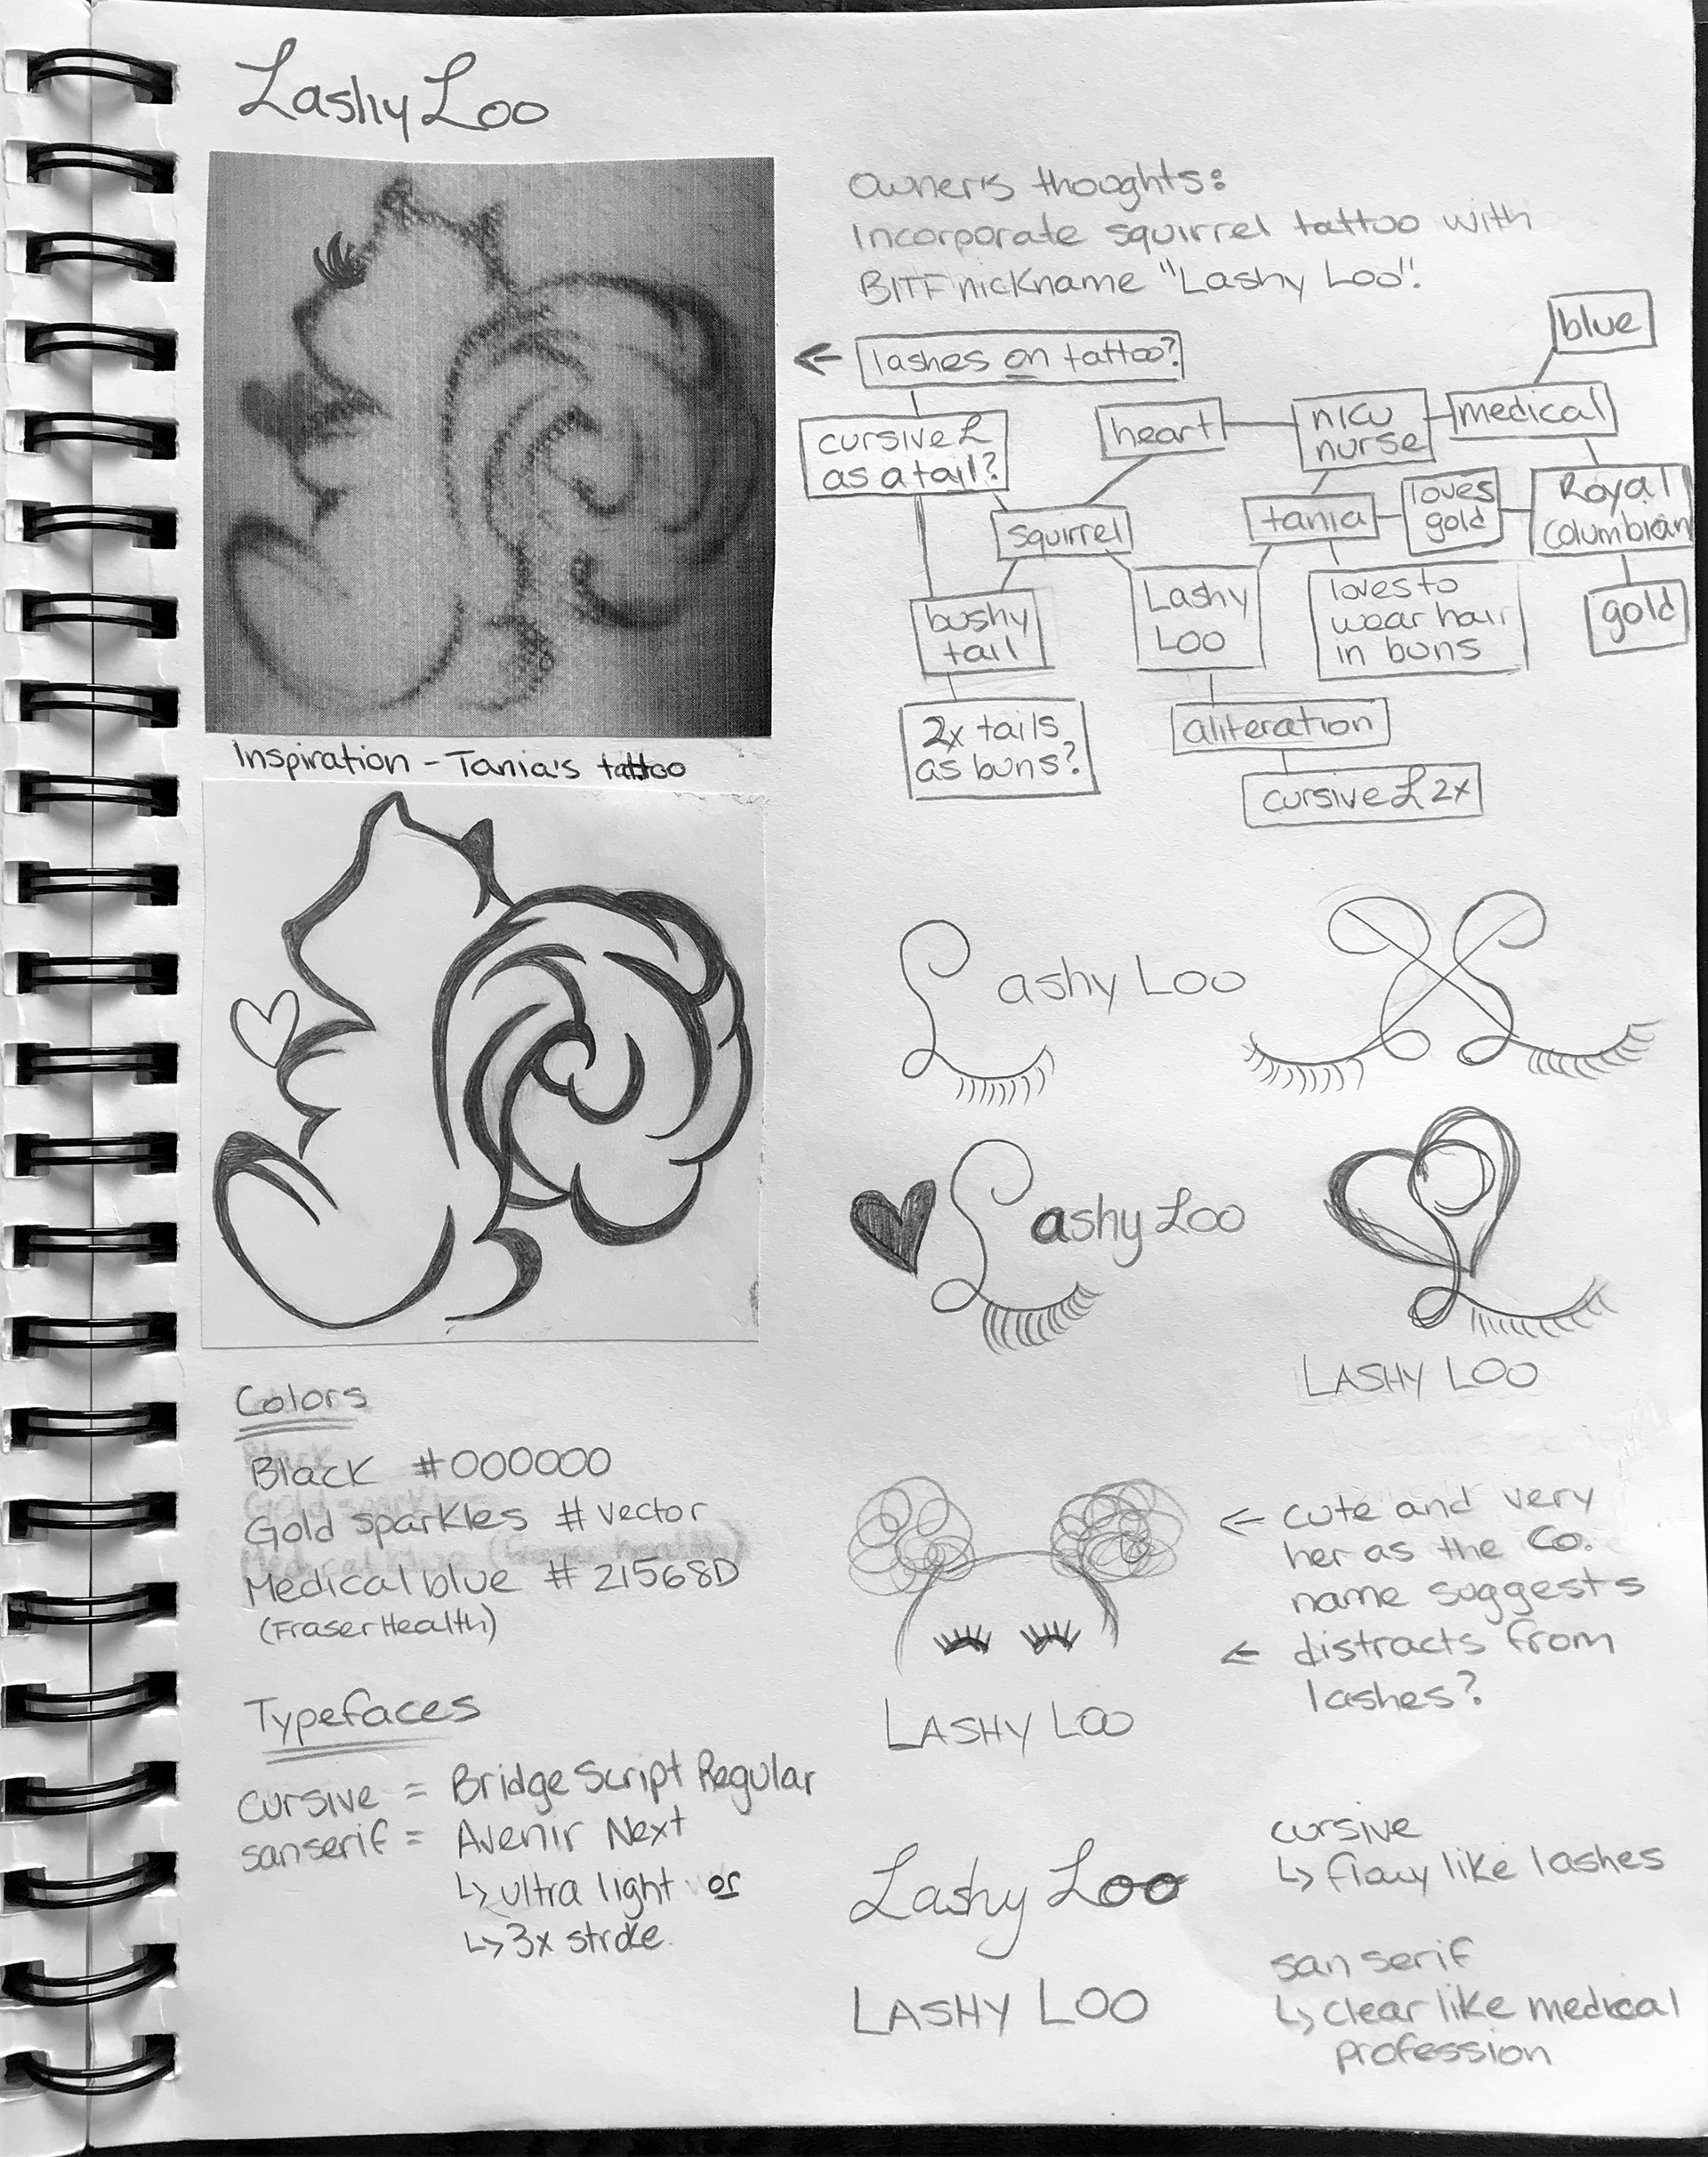 Lashy Loo
Owner's thoughts:
Incorporate squirrel tattoo with
BITF nickname "Lashy Loo".
lashes on tattoo?
cursive L
as a tail?
heart
nicu
nurse
medical
blue
squirrel
tania
loves
gold
Royal
Columbian
bushy
tail
Lashy
Loo
loves to
wear hair
in buns
gold
2x tails
as buns?
aliteration
cursive L 2x
Inspiration - Tania's tattoo
Lashy Loo
Lashy Loo
LASHY LOO
Colors
Black #000000
Gold sparkles # vector
Medical blue #21568D
(Fraser Health)
Typefaces
cursive = Bridge Script Regular
sanserif = Avenir Next
↳ ultra light or
↳ 3x stroke
← cute and very
her as the Co.
name suggests
← distracts from
lashes?
LASHY LOO
Lashy Loo
cursive
↳ flowy like lashes
LASHY LOO
san serif
↳ clear like medical
profession